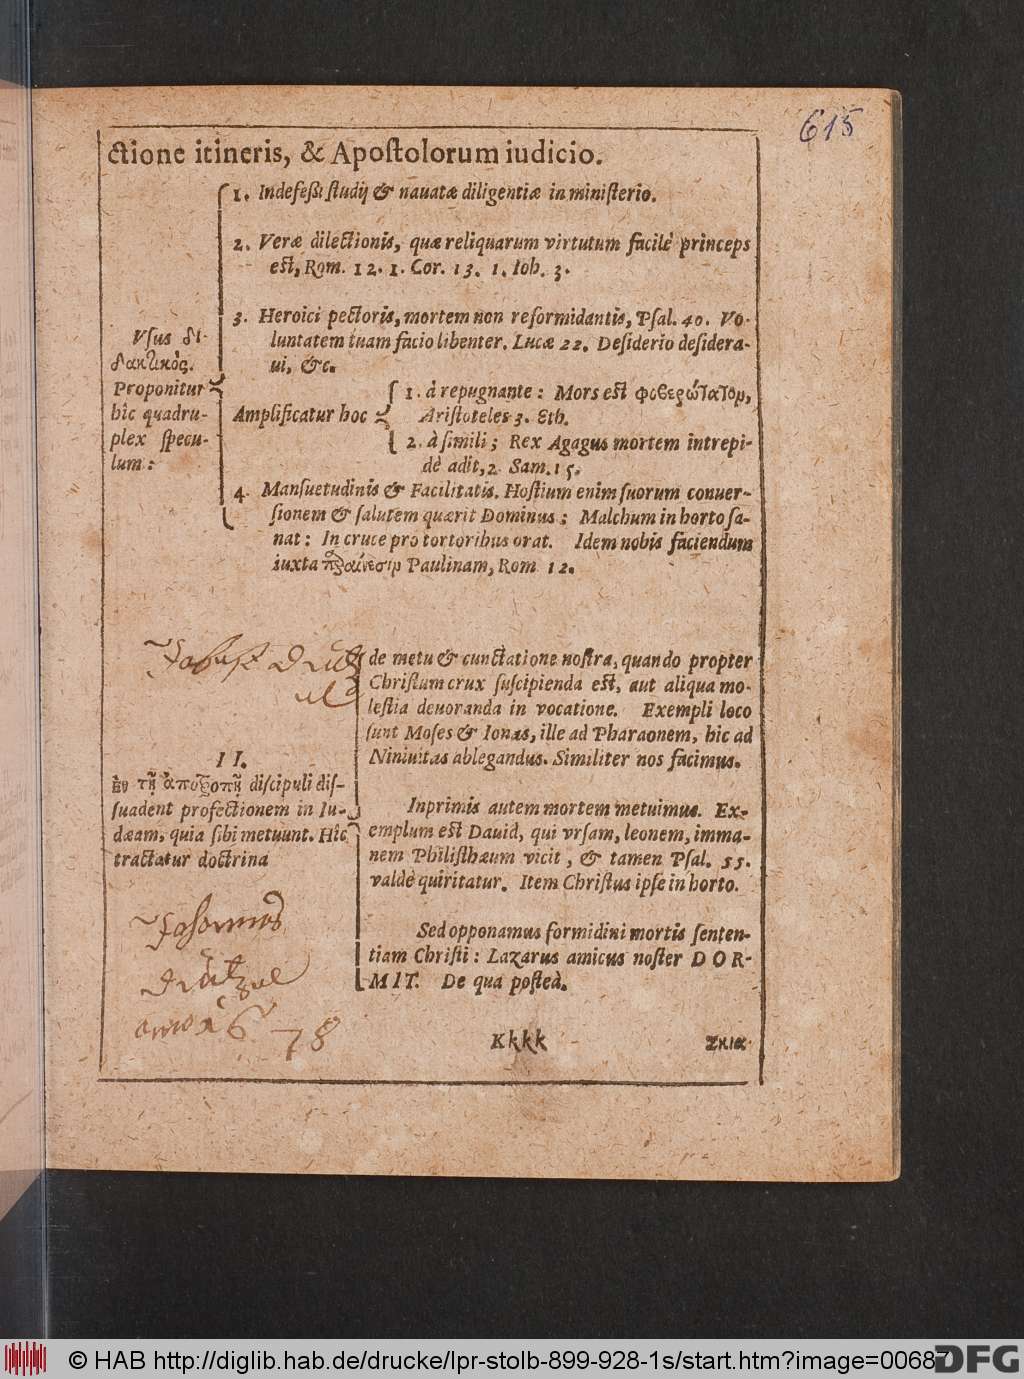 615
ctione itineris, & Apostolorum iudicio.
1. Indefessi studij & nauatæ diligentiæ in ministerio.
2. Veræ dilectionis, quæ reliquarum virtutum facilè princeps
est, Rom. 12. 1. Cor. 13. 1. Ioh. 3.
3. Heroici pectoris, mortem non reformidantis, Psal. 40. Vo-
luntatem tuam facio libenter. Lucæ 22. Desiderio desidera-
ui, &c.
Vsus δι-
δακτικὸς.
Proponitur
hîc quadru-
plex specu-
lum:
Amplificatur hoc
1. à repugnante: Mors est φοβερώτατον,
Aristoteles 3. Eth.
2. à simili; Rex Agagus mortem intrepi-
dè adit, 2. Sam. 15.
4. Mansuetudinis & Facilitatis. Hostium enim suorum conuer-
sionem & salutem quærit Dominus: Malchum in horto sa-
nat: In cruce pro tortoribus orat. Idem nobis faciendum
iuxta παραίνεσιν Paulinam, Rom 12.
II.
ἐν τῇ ἀποτροπῇ discipuli dis-
suadent profectionem in Iu-
dæam, quia sibi metuunt. Hîc
tractatur doctrina
de metu & cunctatione nostra, quando propter
Christum crux suscipienda est, aut aliqua mo-
lestia deuoranda in vocatione. Exempli loco
sunt Moses & Ionas, ille ad Pharaonem, hic ad
Niniuitas ablegandus. Similiter nos facimus.
Inprimis autem mortem metuimus. Ex-
emplum est Dauid, qui vrsam, leonem, imma-
nem Philisthæum vicit, & tamen Psal. 55.
valdè quiritatur. Item Christus ipse in horto.
Sed opponamus formidini mortis senten-
tiam Christi: Lazarus amicus noster DOR-
MIT. De qua posteà.
anno
78
Kkkk
Σκια
© HAB http://diglib.hab.de/drucke/lpr-stolb-899-928-1s/start.htm?image=00687
DFG